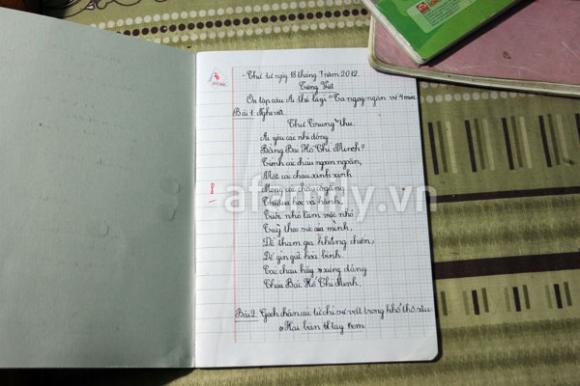 Thứ tư ngày 18 tháng 7 năm 2012.
Tiếng Việt
Ôn tập câu Ai thế là gì
Bài 1: Nghe viết.
Thư Trung thu.
Ai yêu các nhi đồng
Bằng Bác Hồ Chí Minh?
Tính các cháu ngoan ngoãn,
Mặt các cháu xinh xinh
Mong các cháu cố gắng
Thi đua học và hành,
Tuổi nhỏ làm việc nhỏ
Tuỳ theo sức của mình,
Để tham gia kháng chiến,
Để gìn giữ hoà bình
Các cháu hãy xứng đáng
Cháu Bác Hồ Chí Minh.
Bài 2. Gạch chân các từ chỉ sự vật trong khổ thơ sau
Hai bàn tay em
afamily.vn